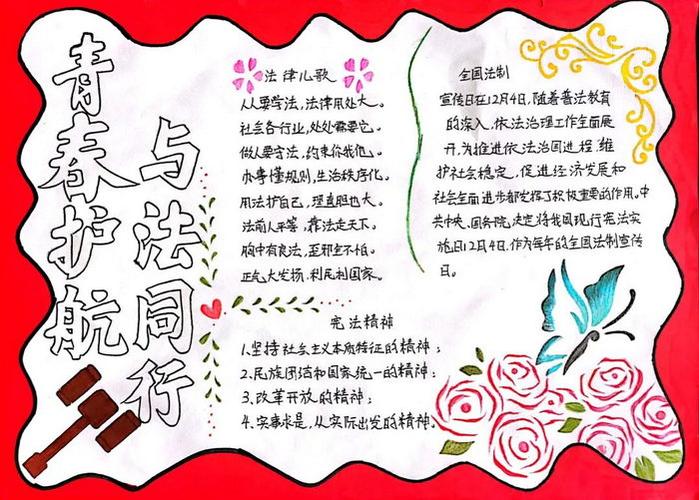 青春护航
与法同行
法律儿歌
人人要学法，法律用处大。
社会各行业，处处需要它。
做人要守法，约束你我他。
办事懂规则，生活秩序化。
用法护自己，理直胆也大。
法前人平等，靠法走天下。
胸中有良法，歪邪全不怕。
正气大发扬，利民利国家。
全国法制
宣传日在12月4日，随着普法教育
的深入，依法治理工作全面展
开，为推进依法治国进程，维
护社会稳定，促进经济发展和
社会全面进步都发挥了积极重要的作用。中
共中央、国务院决定将我国现行宪法实
施日12月4日，作为每年的全国法制宣传
日。
宪法精神
1.坚持社会主义本质特征的精神；
2.民族团结和国家统一的精神；
3.改革开放的精神；
4.实事求是，从实际出发的精神。